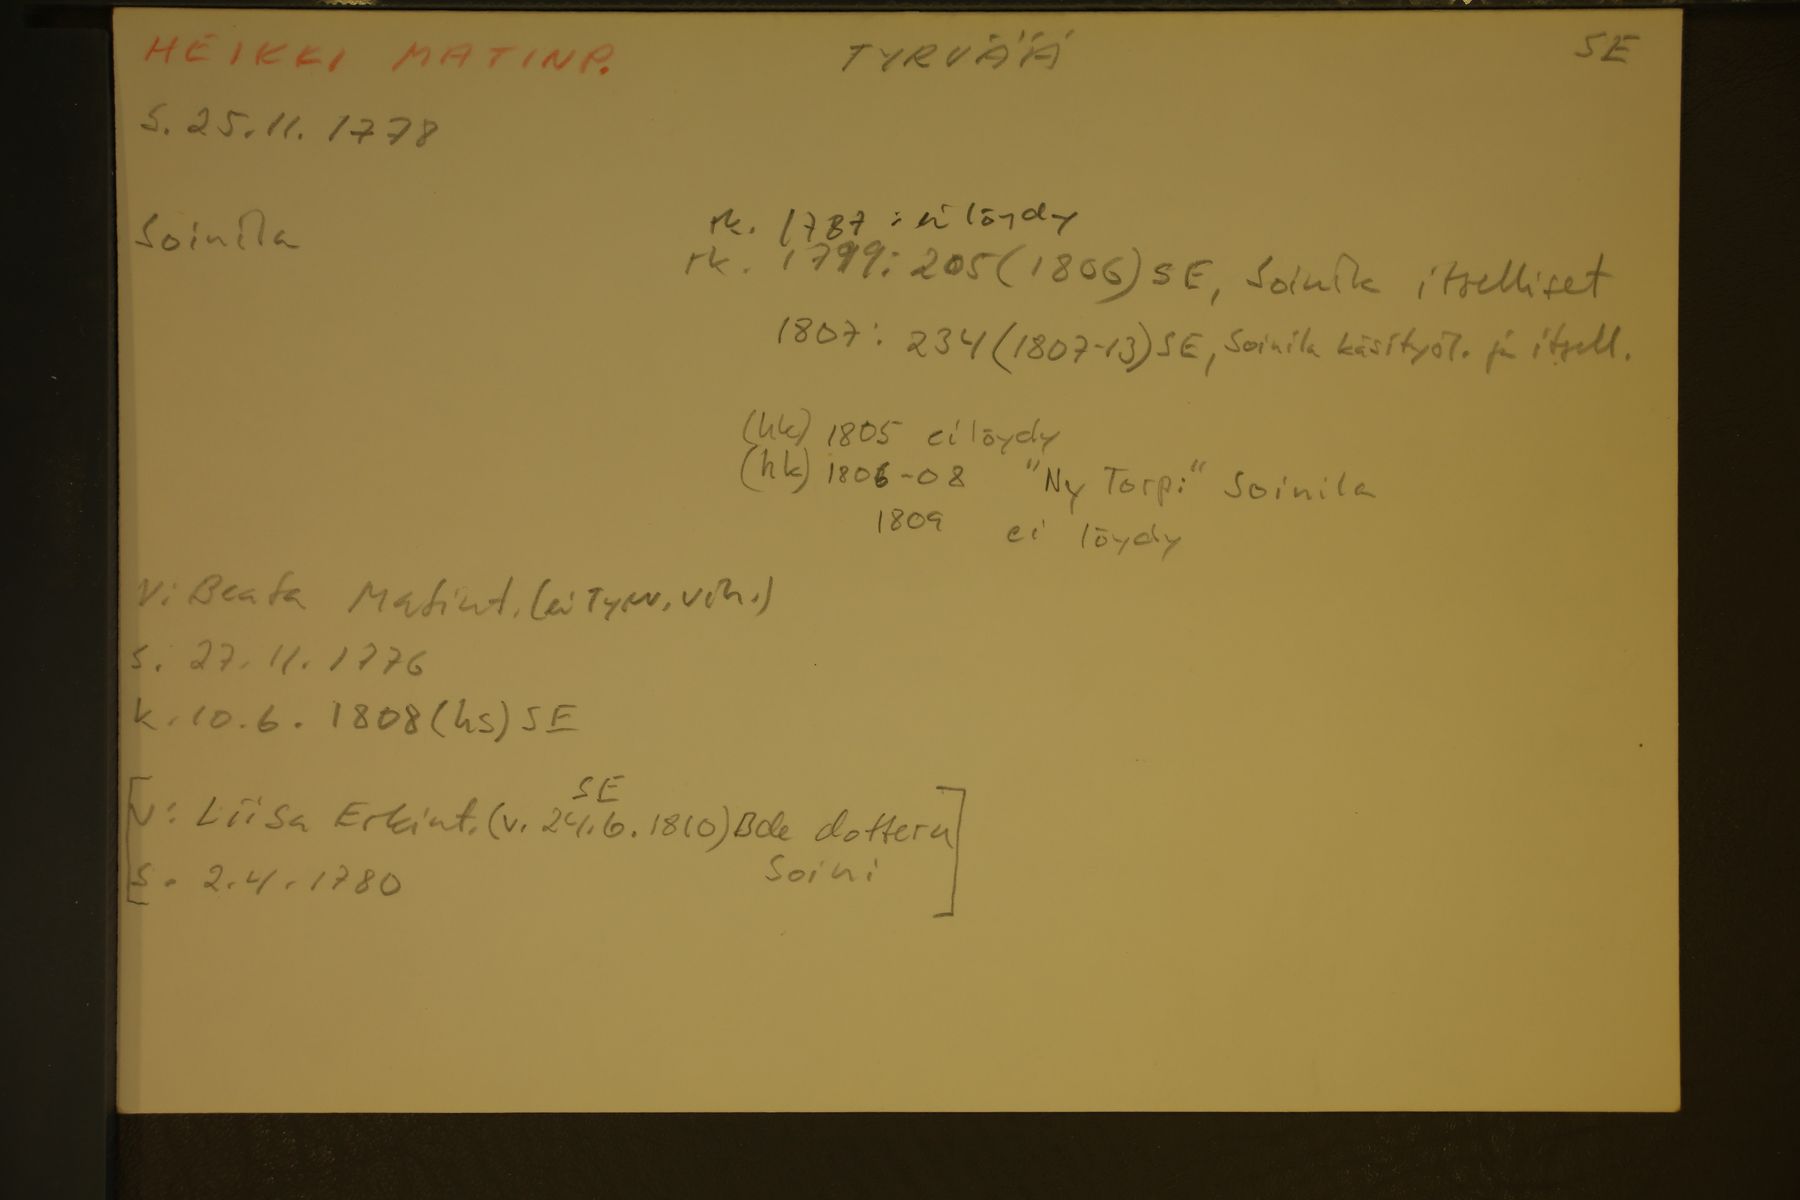 HEIKKI MATINP. TYRVÄÄ SE
S. 25.11.1778
Soinila
rk. 1787: ei löydy
rk. 1799: 205(1806)SE, Soinila itselliset
1807: 234(1807-13)SE, Soinila käsityöl. ja itsell.
(hk) 1805 ei löydy
(hk) 1806-08 "Ny Torpi" Soinila
1809 ei löydy
V: Beata Matint. (ei Tyrv. vih.)
S. 27.11.1776
k. 10.6.1808(hs)SE
SE
[V: Liisa Erkint. (v. 24.6.1810) Bde dottern
Soini
S. 2.4.1780]